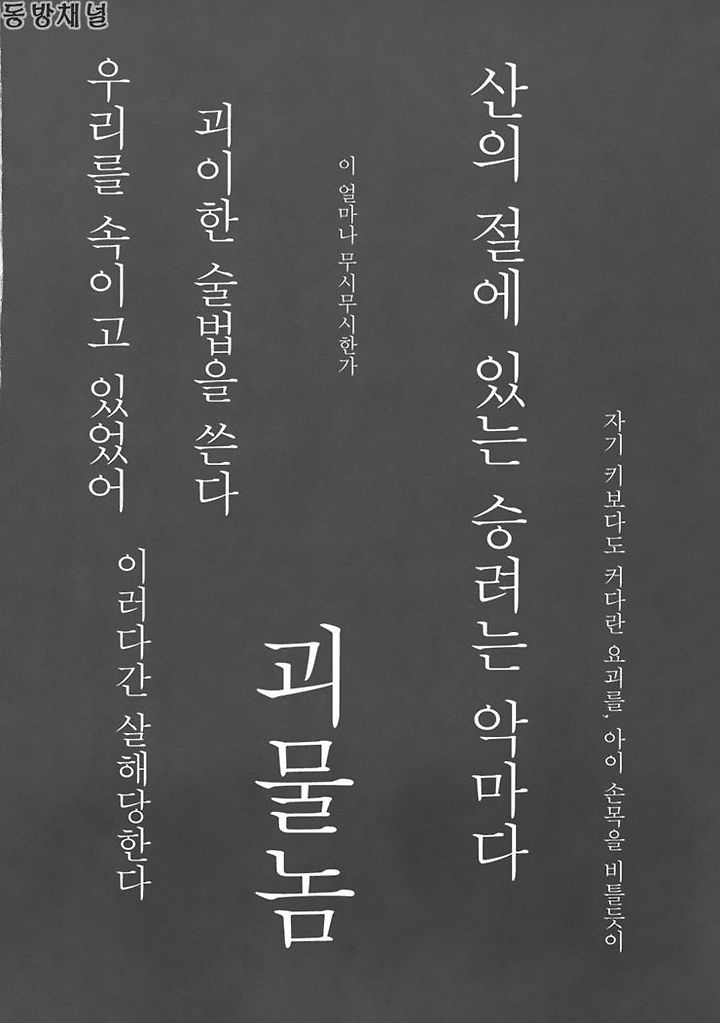 동방채널
자기 키보다도 커다란 요괴를, 아이 손목을 비틀듯이
산의 절에 있는 승려는 악마다
이 얼마나 무시무시한가
괴물놈
괴이한 술법을 쓴다
이러다간 살해당한다
우리를 속이고 있었어